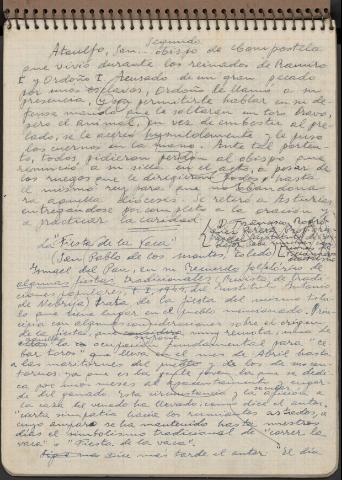 segundo
Ataulfo, San... obispo de Compostela
que vivió durante los reinados de Ramiro
I y Ordoño I. Acusado de un gran pecado
por unos esclavos, Ordoño le llamó a su
presencia, y sin permitirle hablar en su de-
fensa mandó que le soltaran un toro bravo,
pero el animal, en vez de embestir al pre-
lado, se le acercó humildemente y le puso
los cuernos en la mano. Ante tal porten-
to, todos pidieron perdón al obispo que
renunció a su silla en el acto, a pesar de
los ruegos que le dirigieron todos, hasta
el mismo rey para que no abandona-
ra aquella diócesis. Se retiró a Asturias
entregándose por completo a la oración y
a practicar la caridad.
La "Fiesta de la Vaca"
(San Pablo de los Montes, Toledo)
Ismael del Pan, en su Recuerdo folklórico de
algunas fiestas tradicionales (Revista de Tradi-
ciones populares, I, 1944, del Instituto Antonio
de Nebrija) trata de la fiesta del mismo título
lo que tiene lugar en el pueblo mencionado. Prin-
cipia con algunas consideraciones sobre el origen
de la fiesta, muy remota, una de
ellas la ocupación fundamental para "el
bar toros" que lleva en el mes de Abril hasta
las marítimas del pueblo y de los de su con-
tornos, ya que es la gente por la que se dedi-
ca por unos meses al apacentamiento y engor-
de del ganado. Esta circunstancia y la afición a
la caza del venado ha llevado, como dice el autor,
"cierta simpatía hacia los rumiantes astados, a
cuyo amparo se ha mantenido hasta nuestros
días el simbolismo tradicional de "correr la
vaca" o "Fiesta de la vaca".
dice más tarde el autor "El día